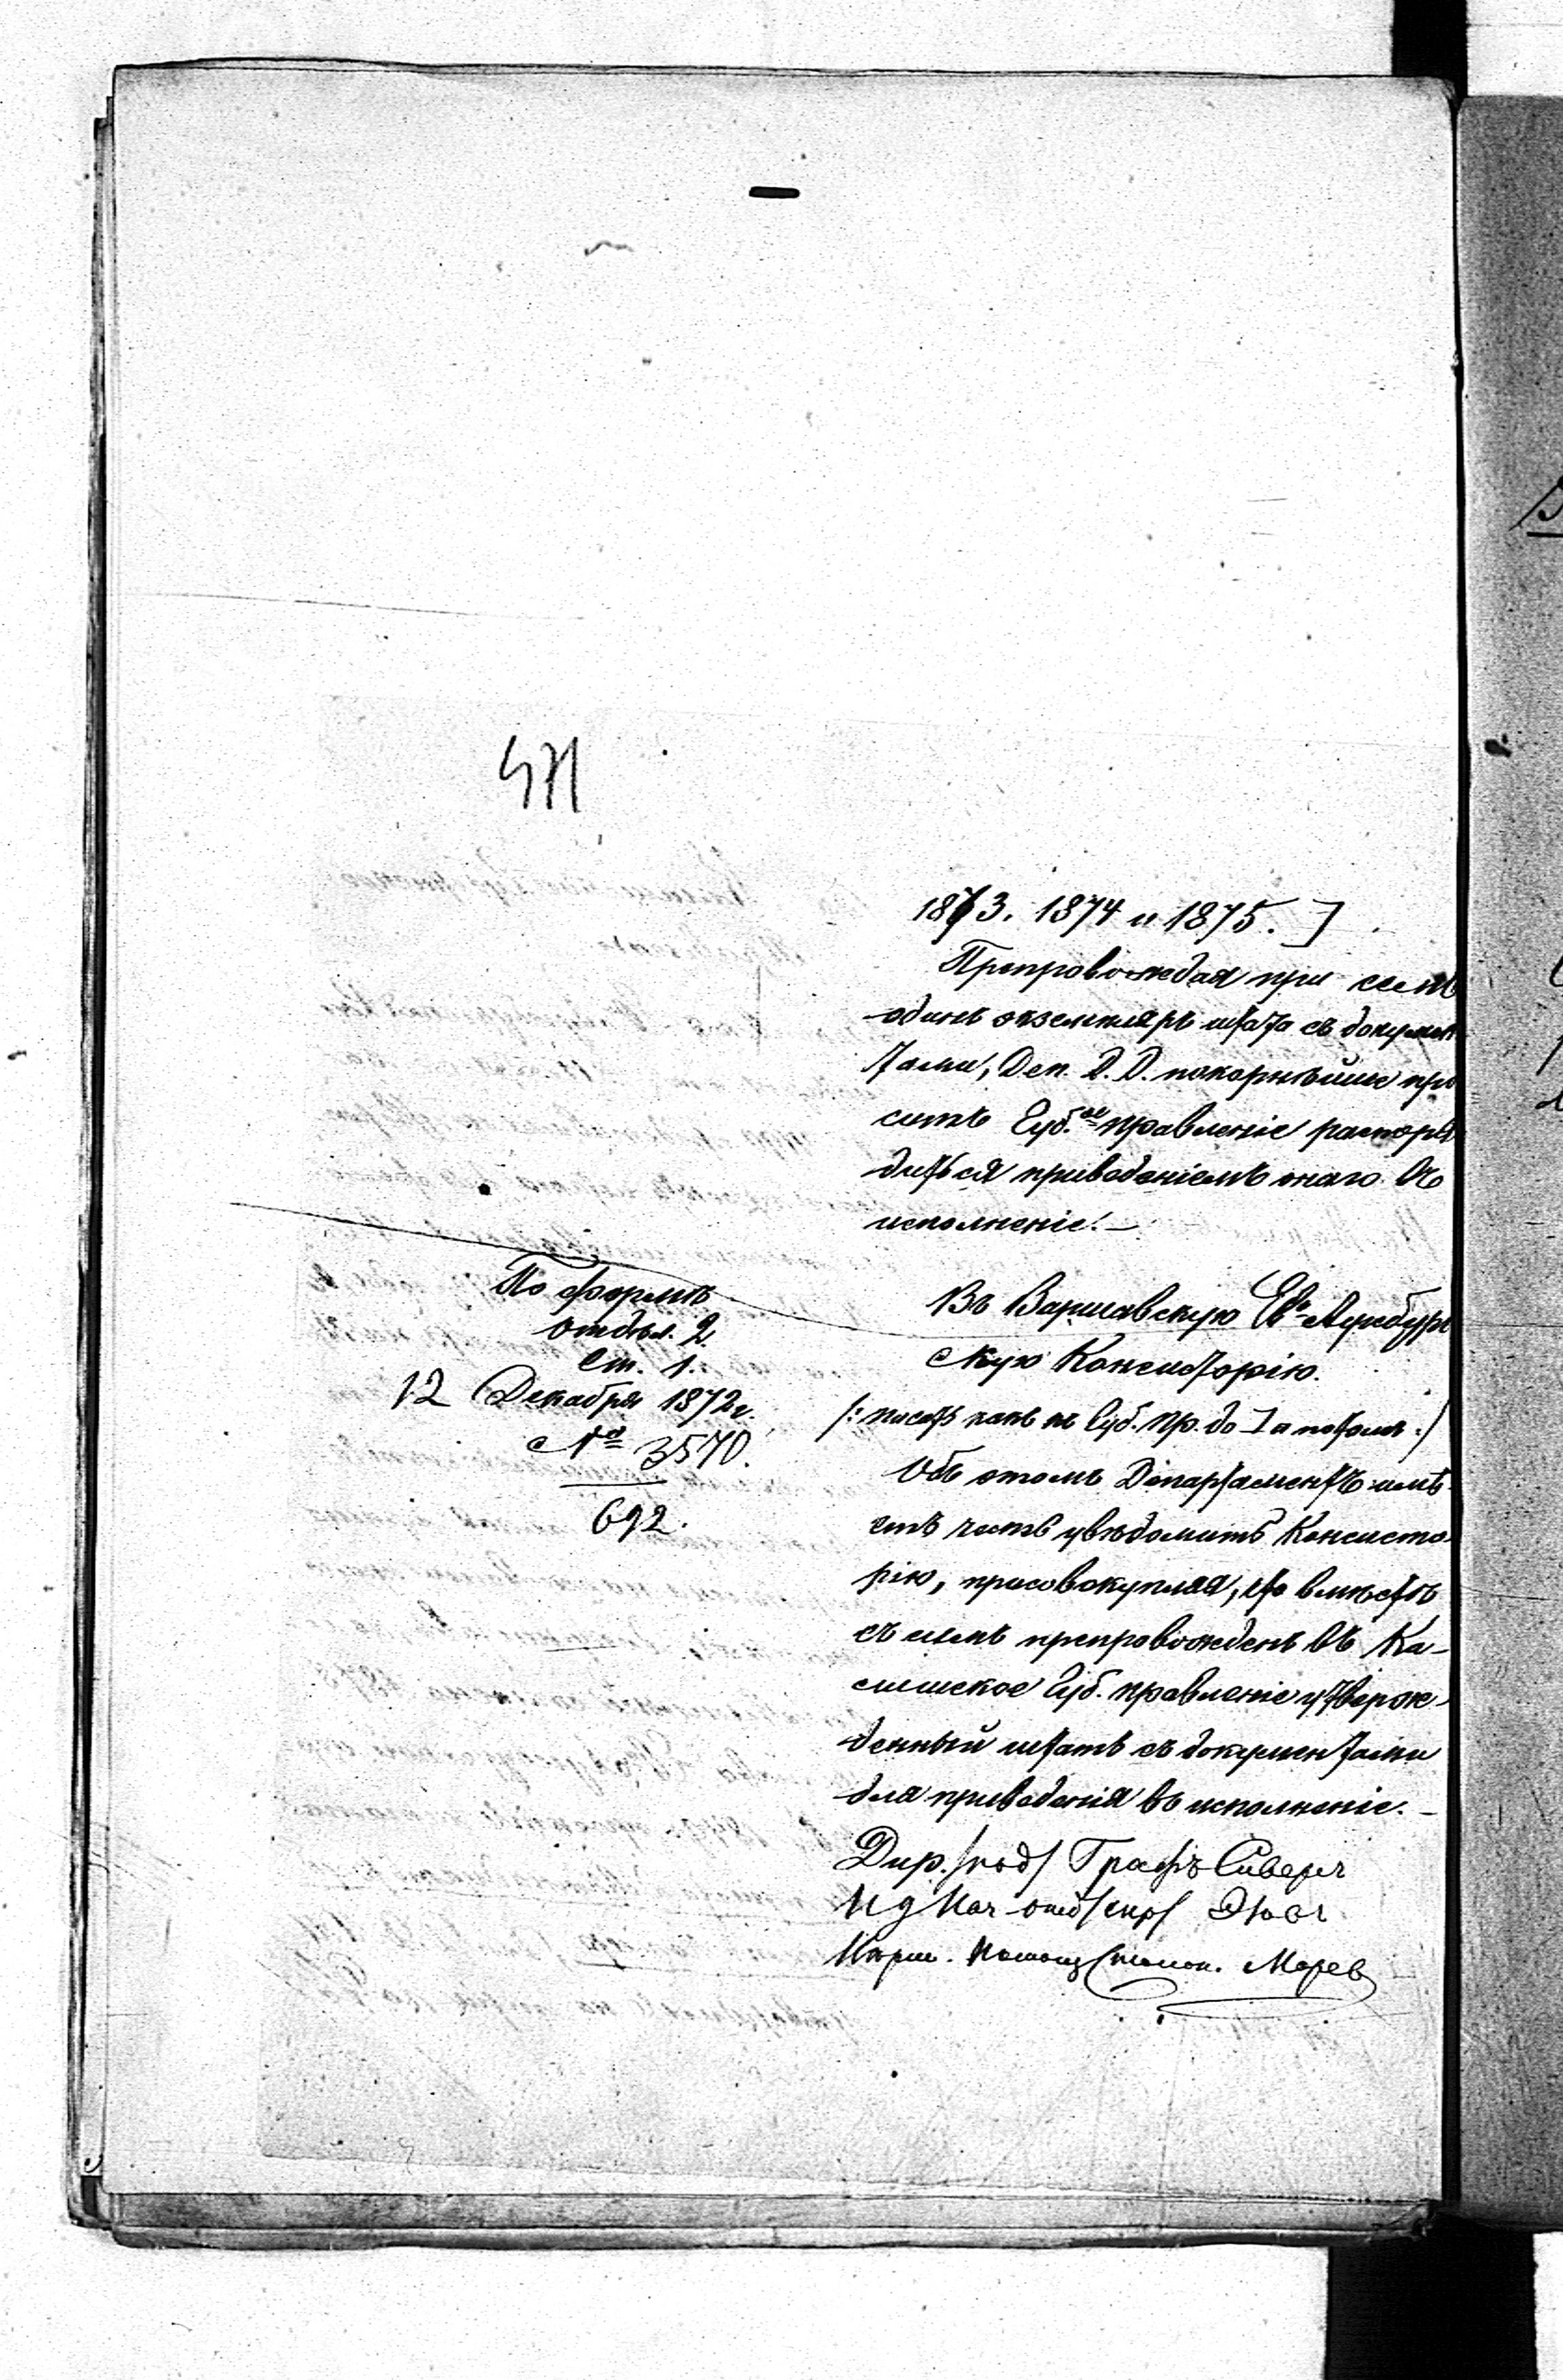 1873. 1874 и 1875. ]
Препровождая при семъ
одинъ экземпляръ штата съ докумен
тами, Деп. Д. Д. покорнѣйше про
ситъ Губ.ое правленіе распоря
диться приведеніемъ онаго въ
исполненіе. —
По формѣ
отдѣл. 2.
Ст. 1.
12 Декабря 1872 г.
№ 3570.
692.
Въ Варшавскую Ев. Аугсбург
скую Консисторію.
/: писать какъ въ Губ. пр. до ] а потомъ :/
Объ этомъ Департаментъ имѣ
етъ честь увѣдомить Консисто-
рію, присовокупляя, что вмѣстѣ
съ симъ препровожденъ въ Ка-
лишское Губ. правленіе утверж-
денный штатъ съ документами
для приведенія въ исполненіе. —
Дир. /под/ Графъ Сиверсъ
И д Нач отд /скр/
Вѣрно. Помощ Столон.